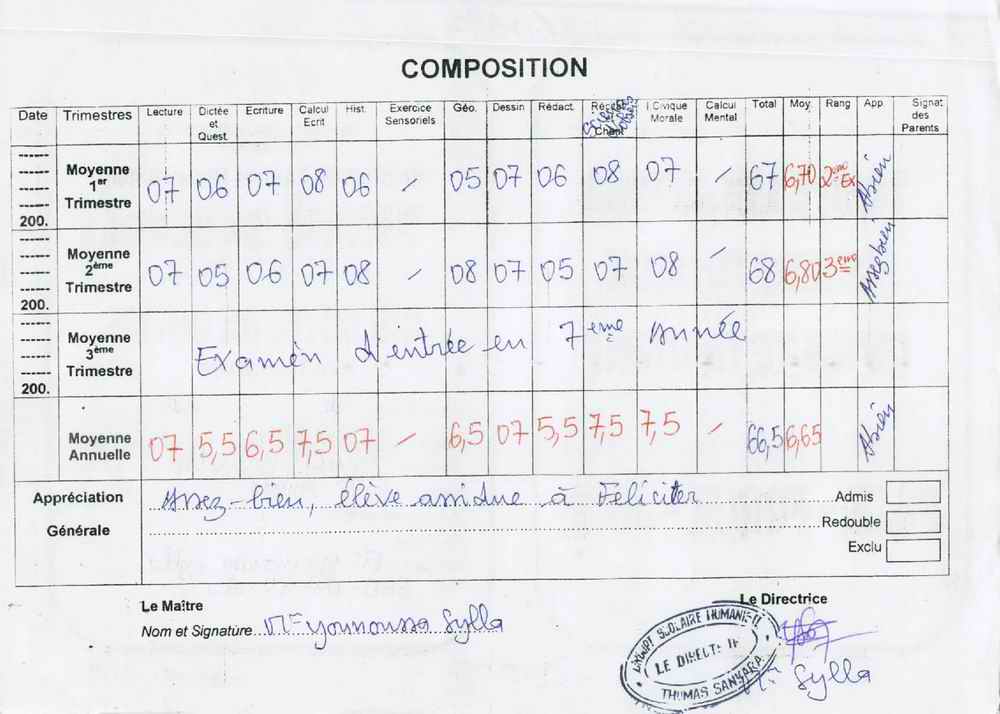 COMPOSITION
Date Trimestres Lecture Dictée et Quest. Ecriture Calcul Ecrit Hist. Exercice Sensoriels Géo. Dessin Rédact. Chant I.Civique Morale Calcul Mental Total Moy. Rang App. Signat des Parents
200. Moyenne 1er Trimestre 07 06 07 08 06 / 05 07 06 08 07 / 67 6,70 2ème Ex Abien
200. Moyenne 2ème Trimestre 07 05 06 07 08 / 08 07 05 07 08 / 68 6,80 3ème Assez bien
200. Moyenne 3ème Trimestre Examen d'entrée en 7ème Année
Moyenne Annuelle 07 5,5 6,5 7,5 07 / 6,5 07 5,5 7,5 7,5 / 66,5 6,65 Abien
Appréciation Générale Assez-bien, élève assidue à Féliciter
Admis
Redouble
Exclu
Le Maître
Nom et Signature Mr Younoussa Sylla
Le Directrice
SCOLAIRE HUMANITE
LE DIRECT
THOMAS SANKARA
Sylla